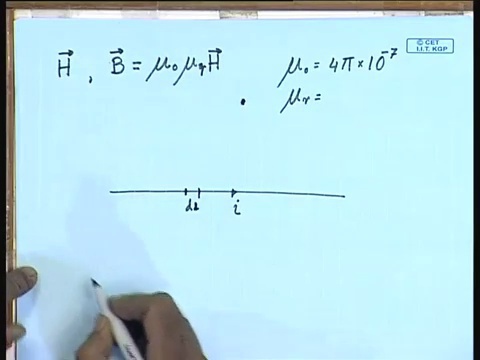 © CET
I.I.T. KGP
H⃗ , B⃗ = μ₀μᵣH⃗
μ₀ = 4π×10⁻⁷
μᵣ =
dl
i